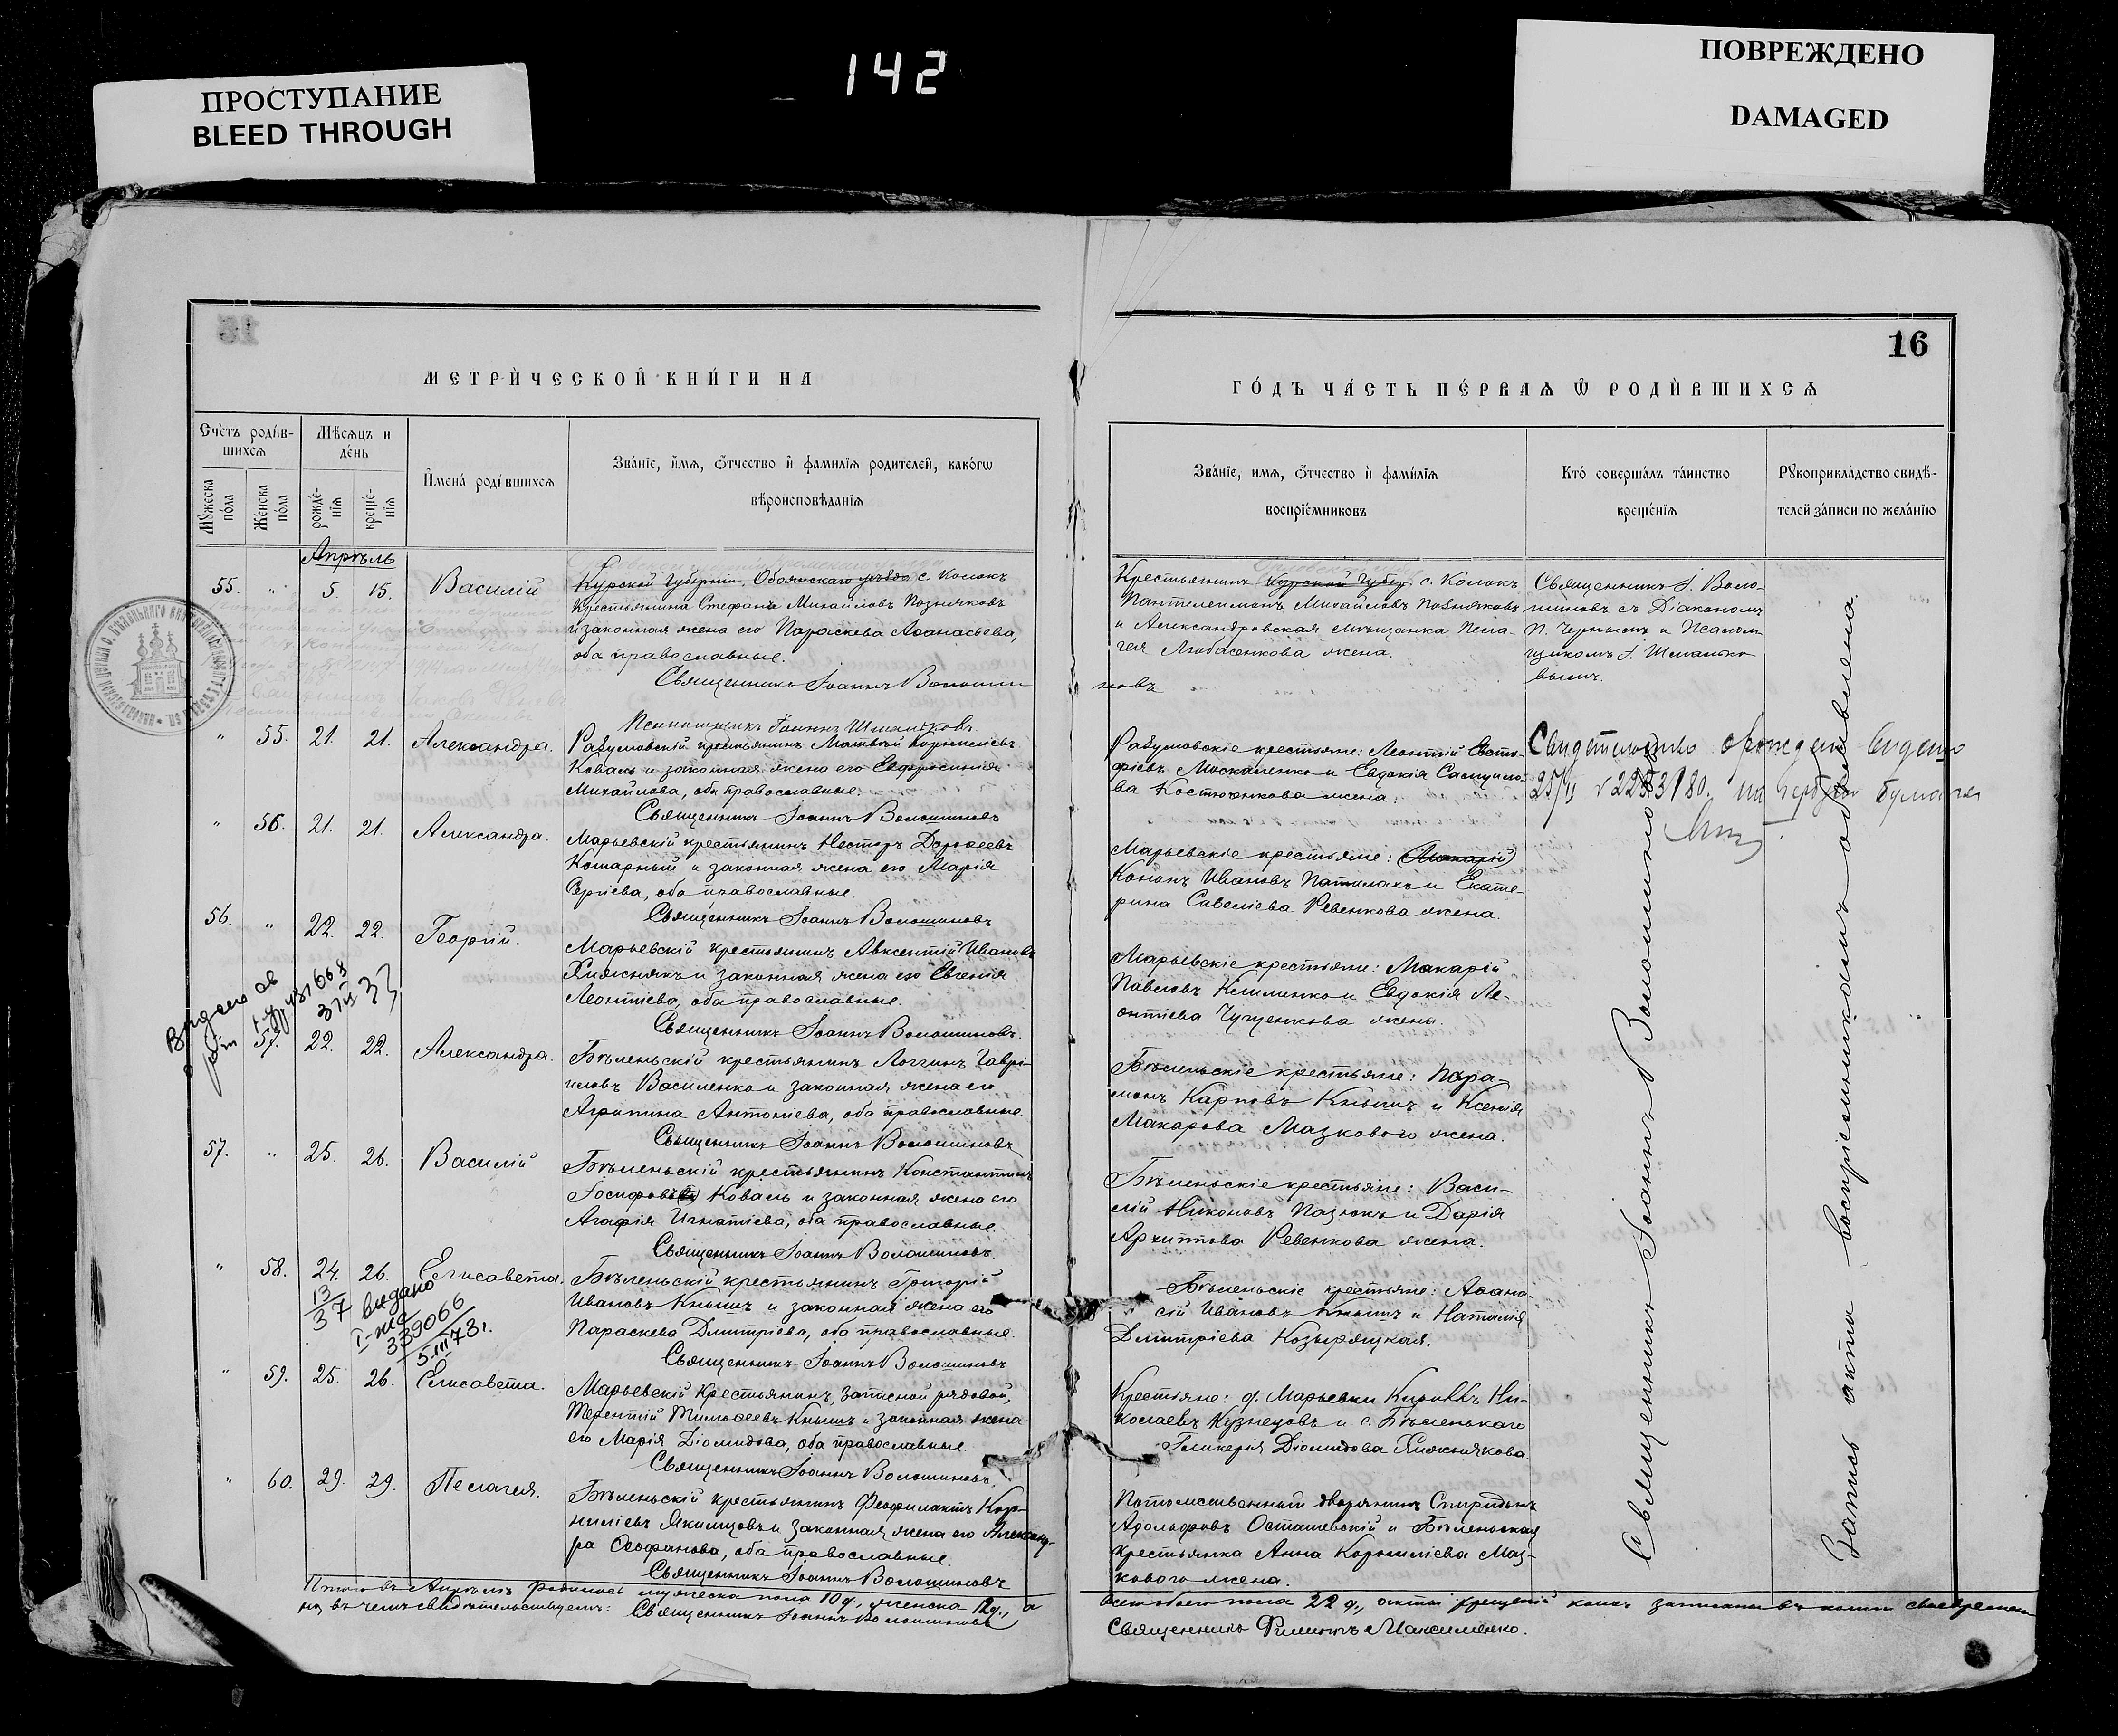 ПРОСТУПАНИЕ
BLEED THROUGH
142
ПОВРЕЖДЕНО
DAMAGED
16
МЕТРИ́ЧЕСКОЙ КНИ́ГИ НА
ГО́ДЪ ЧА́СТЬ ПЕ́РВАѦ Ѽ РОДИ́ВШИХСѦ
Сче́тъ роди́в-
шихсѧ
Мѣ́сѧцъ и
де́нь
Мꙋ́жеска
по́ла
Же́нска
по́ла
рожде́-
нїѧ
креще́-
нїѧ
И҆мена̀ роди́вшихсѧ
Зва́нїе, и҆́мѧ, ѻ҆́тчество и҆ фами́лїѧ роди́телей, како́гѡ
вѣроисповѣ́данїѧ
Зва́нїе, имѧ, ѻ҆́тчество и҆ фами́лїѧ
воспрїе́мниковъ
Кто̀ соверша́лъ та́инство
креще́нїѧ
Рꙋкоприкла́дство свидѣ́-
телей за́писи по жела́нїю
Апрѣль
55. " 5. 15. Василій
Курской Губерніи, Обоянскаго уѣзда с. Колокъ
крестьянина Стефанъ Михайловъ Позняковъ
и законная жена его Параскева Аѳанасьева,
оба православные.
Священникъ Іоаннъ Волоши
новъ
Крестьянинъ Курской Губер. с. Колокъ
Пантелеимонъ Михайловъ Позняковъ
и Александровская мѣщанка Пела-
гея Любасенкова жена.
Священникъ І. Воло-
шиновъ съ Діакономъ
П. Чернымъ и Псалом-
щикомъ І. Шмалько
вымъ.
Псаломщикъ Іоаннъ Шмальковъ
" 55. 21. 21. Александра.
Разумовскій крестьянинъ Матвѣй Корниліевъ
Коваль и законная жена его Евфросинія
Михайлова, оба православные.
Священникъ Іоаннъ Волошиновъ
Разумовскіе крестьяне: Леонтій Евста-
фіевъ Москаленко и Евдокія Самуило-
ва Костюченкова жена.
Свидетельство о рожден видано
на гербовой бумаге
" 56. 21. 21. Александра.
Марьевскій крестьянинъ Несторъ Дороѳеевъ
Кошарный и законная жена его Марія
Сергіева, оба православные.
Священникъ Іоаннъ Волошиновъ
Марьевскіе крестьяне: Макарій
Кононъ Ивановъ Патилахъ и Екате-
рина Савеліева Ревенкова жена.
56. " 22. 22. Георгій.
Марьевскій крестьянинъ Авксентій Ивановъ
Хижнякъ и законная жена его Евгенія
Леонтіева, оба православные.
Священникъ Іоаннъ Волошиновъ.
Марьевскіе крестьяне: Макарій
Павловъ Клименко и Евдокія Ле-
онтіева Чущенкова жена.
57. 22. 22. Александра.
Бѣленьскій крестьянинъ Логгинъ Гаврі-
иловъ Василенко и законная жена его
Агрипина Антоніева, оба православные.
Священникъ Іоаннъ Волошиновъ
Бѣленьскіе крестьяне: Пара-
монъ Карповъ Кнышъ и Ксенія
Макарова Мазкового жена.
57. " 25. 26. Василій
Бѣленьскій крестьянинъ Константинъ
Іосифовъ Коваль и законная жена его
Агафія Игнатіева, оба православные
Священникъ Іоаннъ Волошиновъ
Бѣленьскіе крестьяне: Васи-
лій Никоновъ Пазюкъ и Дарія
Архиппова Ревенкова жена.
" 58. 24. 26. Елисавета.
13
37 видано
339066
5.III 73.
Бѣленьскій крестьянинъ Григорій
Ивановъ Кнышъ и законная жена его
Параскева Дмитріева, оба православные.
Священникъ Іоаннъ Волошиновъ
Бѣленьскіе крестьяне: Аѳана-
сій Ивановъ Кнышъ и Наталія
Дмитріева Козыряцкая.
" 59. 25. 26. Елисавета.
Марьевскій крестьянинъ, запасной рядовой,
Терентій Тимоѳеевъ Кнышъ и законная жена
его Марія Діомидова, оба православные.
Священникъ Іоаннъ Волошиновъ
Крестьяне: д. Марьевки Кириллъ Ни-
колаевъ Кузнецовъ и с. Бѣленькаго
Гликерія Діомидова Хижнякова.
" 60. 29. 29. Пелагея.
Бѣленьскій крестьянинъ Феофилактъ Кор-
ниліевъ Якимцовъ и законная жена его Александ-
ра Ѳеофанова, оба православные.
Священникъ Іоаннъ Волошиновъ
Потомственный дворянинъ Спиридонъ
Адольфовъ Осташевскій и Бѣленьская
крестьянка Анна Корниліева Маз-
кового жена.
Священникъ Іоаннъ Волошиновъ
Запись акта воспріемникамъ объявлена.
Итого въ Апрѣлѣ родилось мужеска пола 10 д., женска 12 д., а
всего обоего пола 22 д., акты крещенія коихъ записаны въ книги своевремен
но, въ чемъ свидѣтельствуемъ: Священникъ Іоаннъ Волошиновъ
Священникъ Филиппъ Максименко.